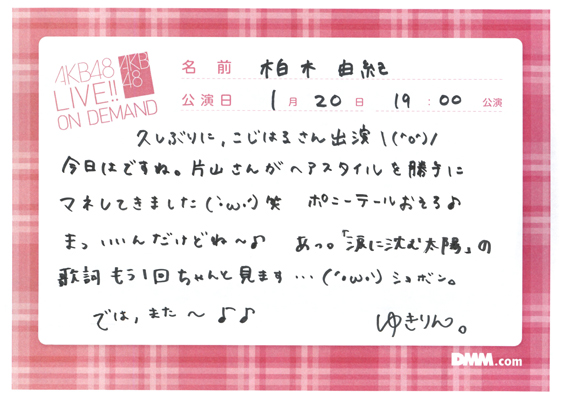 AKB48
LIVE!!
ON DEMAND
AKB
48
名前 柏木 由紀
公演日 1月 20日 19:00 公演
久しぶりに、こじはるさん出演\(^o^)/
今日はですね。片山さんがヘアスタイルを勝手に
マネしてきました(´・ω・`)笑 ポニーテールおそろ♪
まっ いいんだけどね〜♪ あっ。「涙に沈む太陽」の
歌詞もう1回ちゃんと見ます…(´・ω・`)ショボン。
では、また〜♪♪ ゆきりん。
DMM.com